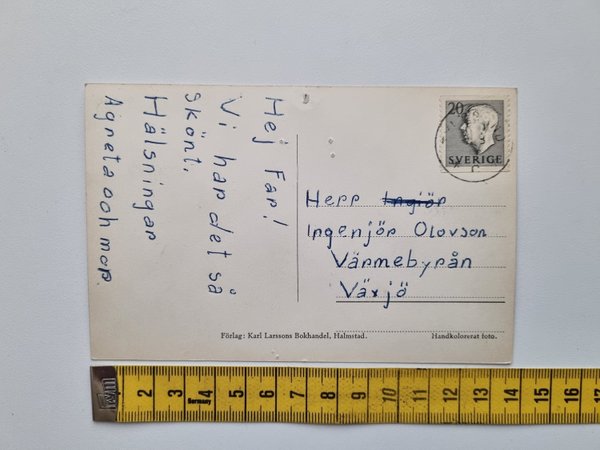 Hej Far!
Vi har det så
skönt.
Hälsningar
Agneta och mor.
20
SVERIGE
Herr Ingiör
Ingenjör Olovson
Värmebyrån
Växjö
Förlag: Karl Larssons Bokhandel, Halmstad.
Handkolorerat foto.
2 3 4 5 6 7 8 9 10 11 12 13 14 15 16 17
Germany